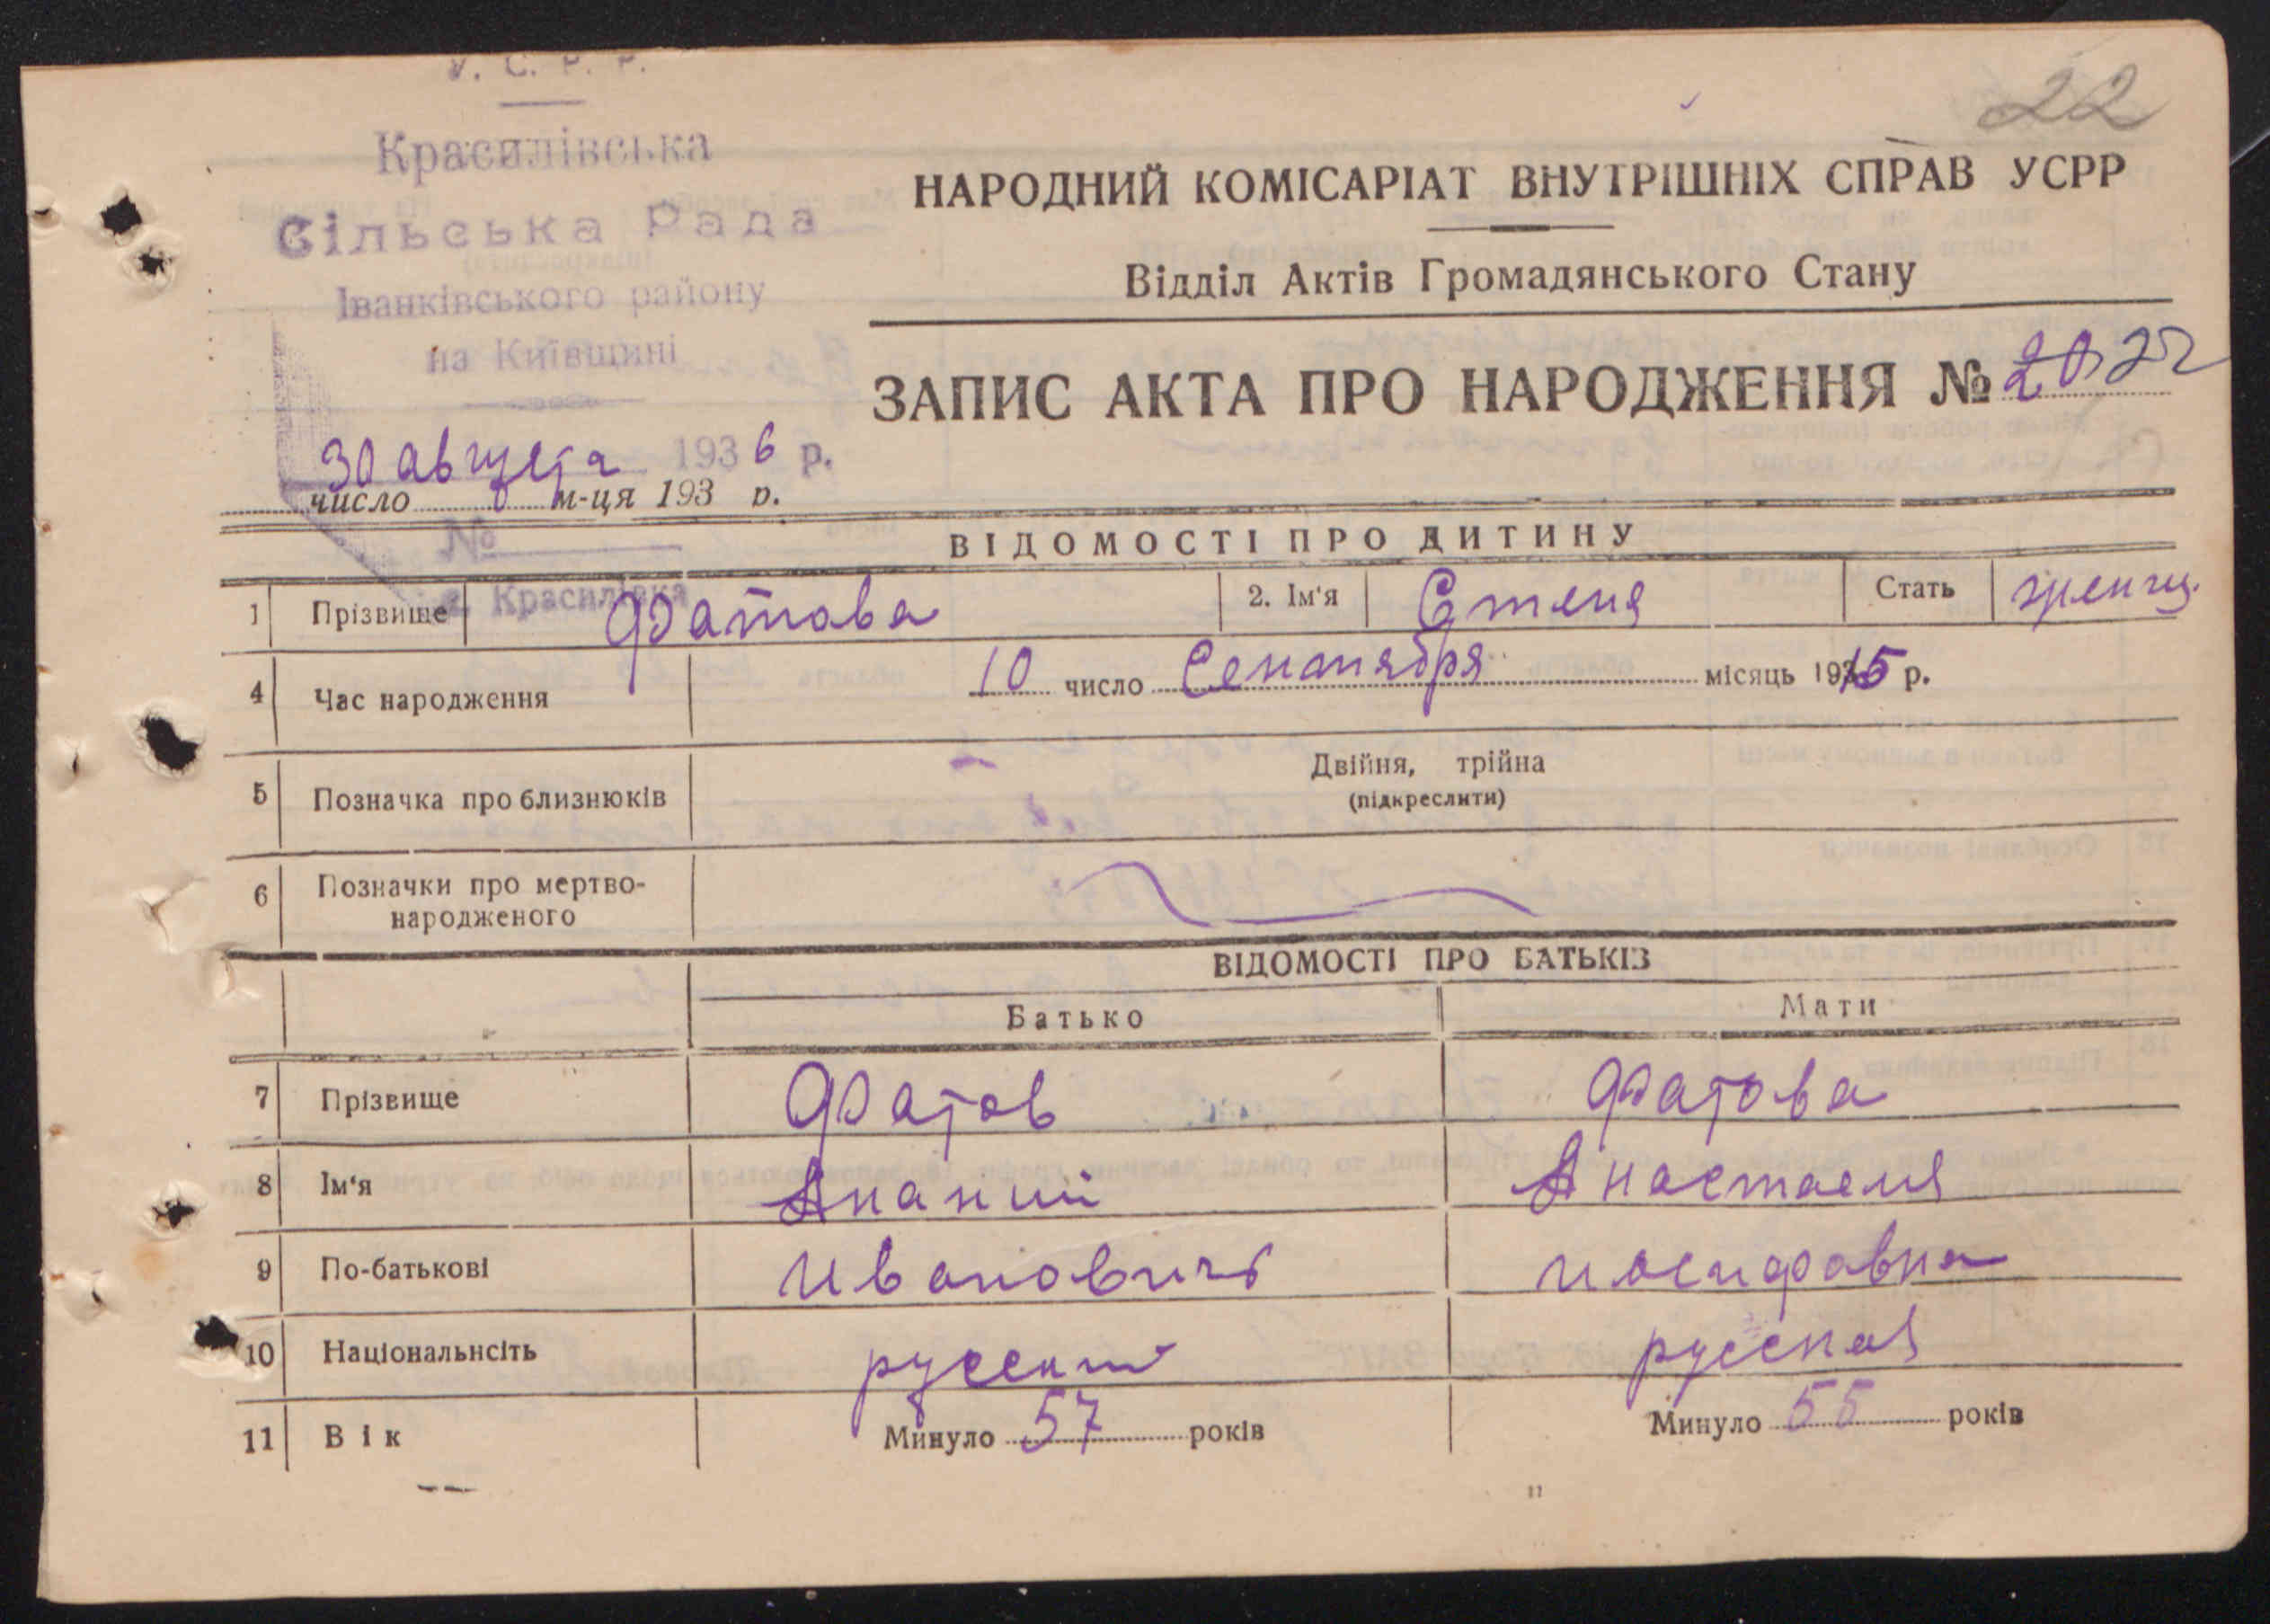 У. С. Р. Р.
22
Красилівська
Сільська Рада
Іванківського району
на Київщині
НАРОДНИЙ КОМІСАРІАТ ВНУТРІШНІХ СПРАВ УСРР
Відділ Актів Громадянського Стану
ЗАПИС АКТА ПРО НАРОДЖЕННЯ № 20 22
30 августа 1936 р.
число м-ця 193 р.
№
с. Красилівка
ВІДОМОСТІ ПРО ДИТИНУ
1 Прізвище Фатова 2. Ім'я Стеня Стать женщ.
4 Час народження 10 число Сентября місяць 1915 р.
5 Позначка про близнюків Двійня, трійна
(підкреслити)
6 Позначки про мертво-
народженого
ВІДОМОСТІ ПРО БАТЬКІВ
Батько Мати
7 Прізвище Фатов Фатова
8 Ім'я Ананий Анастасия
9 По-батькові Ивановичь Иосифовна
10 Національнсіть русский русская
11 Вік Минуло 57 років Минуло 55 років